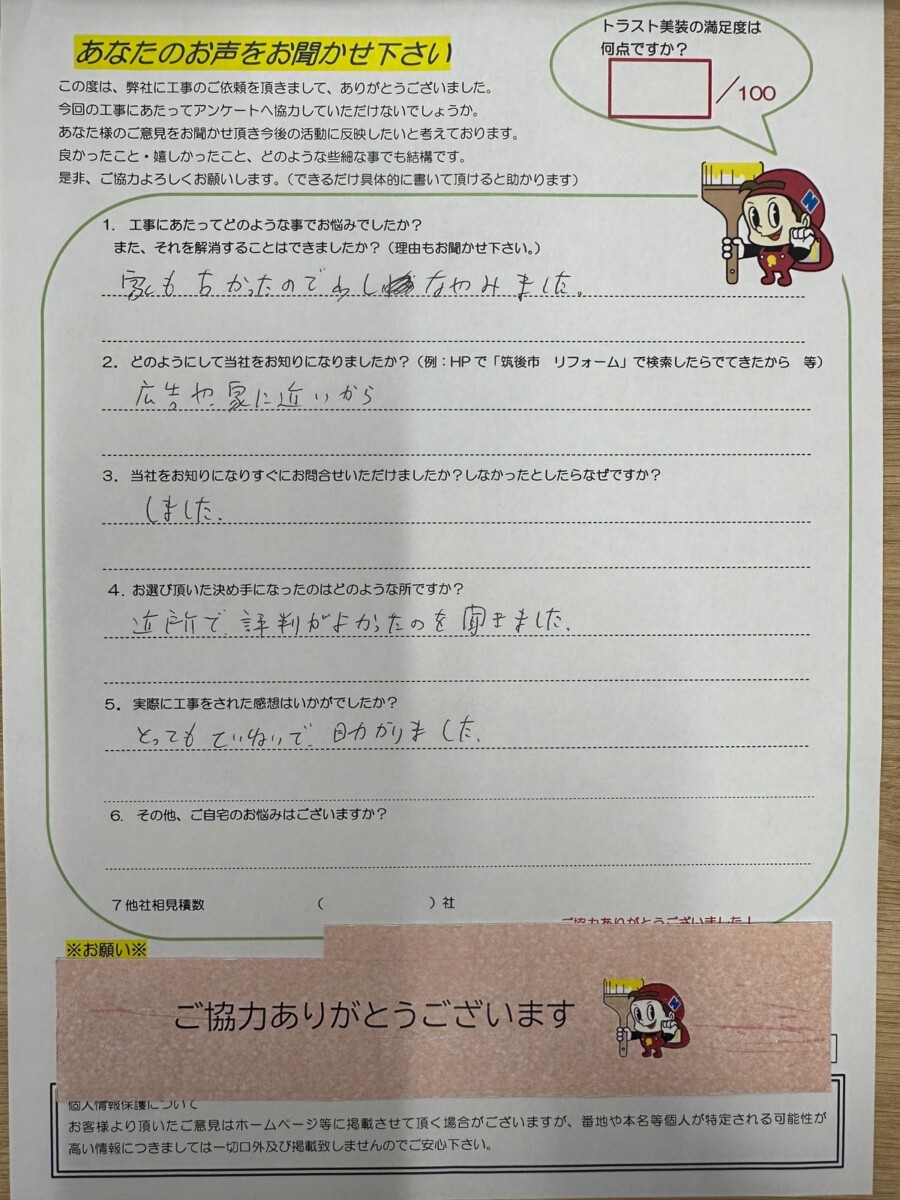 あなたのお声をお聞かせ下さい
トラスト美装の満足度は
何点ですか?
/100
この度は、弊社に工事のご依頼を頂きまして、ありがとうございました。
今回の工事にあたってアンケートへ協力していただけないでしょうか。
あなた様のご意見をお聞かせ頂き今後の活動に反映したいと考えております。
良かったこと・嬉しかったこと、どのような些細な事でも結構です。
是非、ご協力よろしくお願いします。(できるだけ具体的に書いて頂けると助かります)
1. 工事にあたってどのような事でお悩みでしたか?
また、それを解消することはできましたか?(理由もお聞かせ下さい。)
家も古かったので少しなやみました。
2. どのようにして当社をお知りになりましたか?(例:HPで「筑後市 リフォーム」で検索したらでてきたから 等)
広告や、家に近いから
3. 当社をお知りになりすぐにお問合せいただけましたか?しなかったとしたらなぜですか?
しました.
4. お選び頂いた決め手になったのはどのような所ですか?
近所で評判がよかったのを聞きました.
5. 実際に工事をされた感想はいかがでしたか?
とってもていねいで、助かりました.
6. その他、ご自宅のお悩みはございますか?
7 他社相見積数 ( ) 社
ご協力ありがとうございました!
※お願い※
ご協力ありがとうございます
個人情報保護について
お客様より頂いたご意見はホームページ等に掲載させて頂く場合がございますが、番地や本名等個人が特定される可能性が
高い情報につきましては一切口外及び掲載致しませんのでご安心下さい。